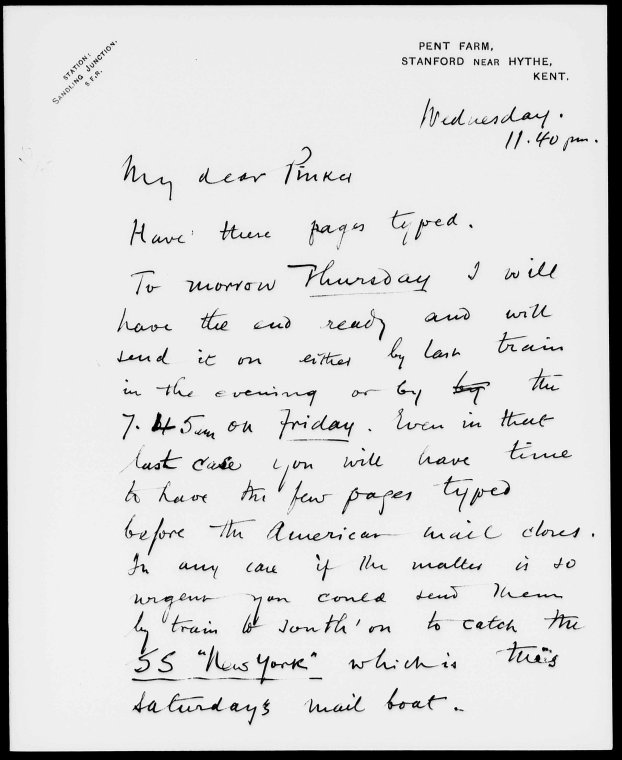 STATION:
SANDLING JUNCTION.
S.E.R.
PENT FARM,
STANFORD NEAR HYTHE,
KENT.
Wednesday.
11.40 pm.
My dear Pinker
Have these pages typed.
To morrow Thursday I will
have the end ready and will
send it on either by last train
in the evening or by by the
7.45am on Friday. Even in that
last case you will have time
to have the few pages typed
before the American mail closes.
In any case if the matter is so
urgent you could send them
by train to South'on to catch the
SS "New York" which is this
Saturday's mail boat.